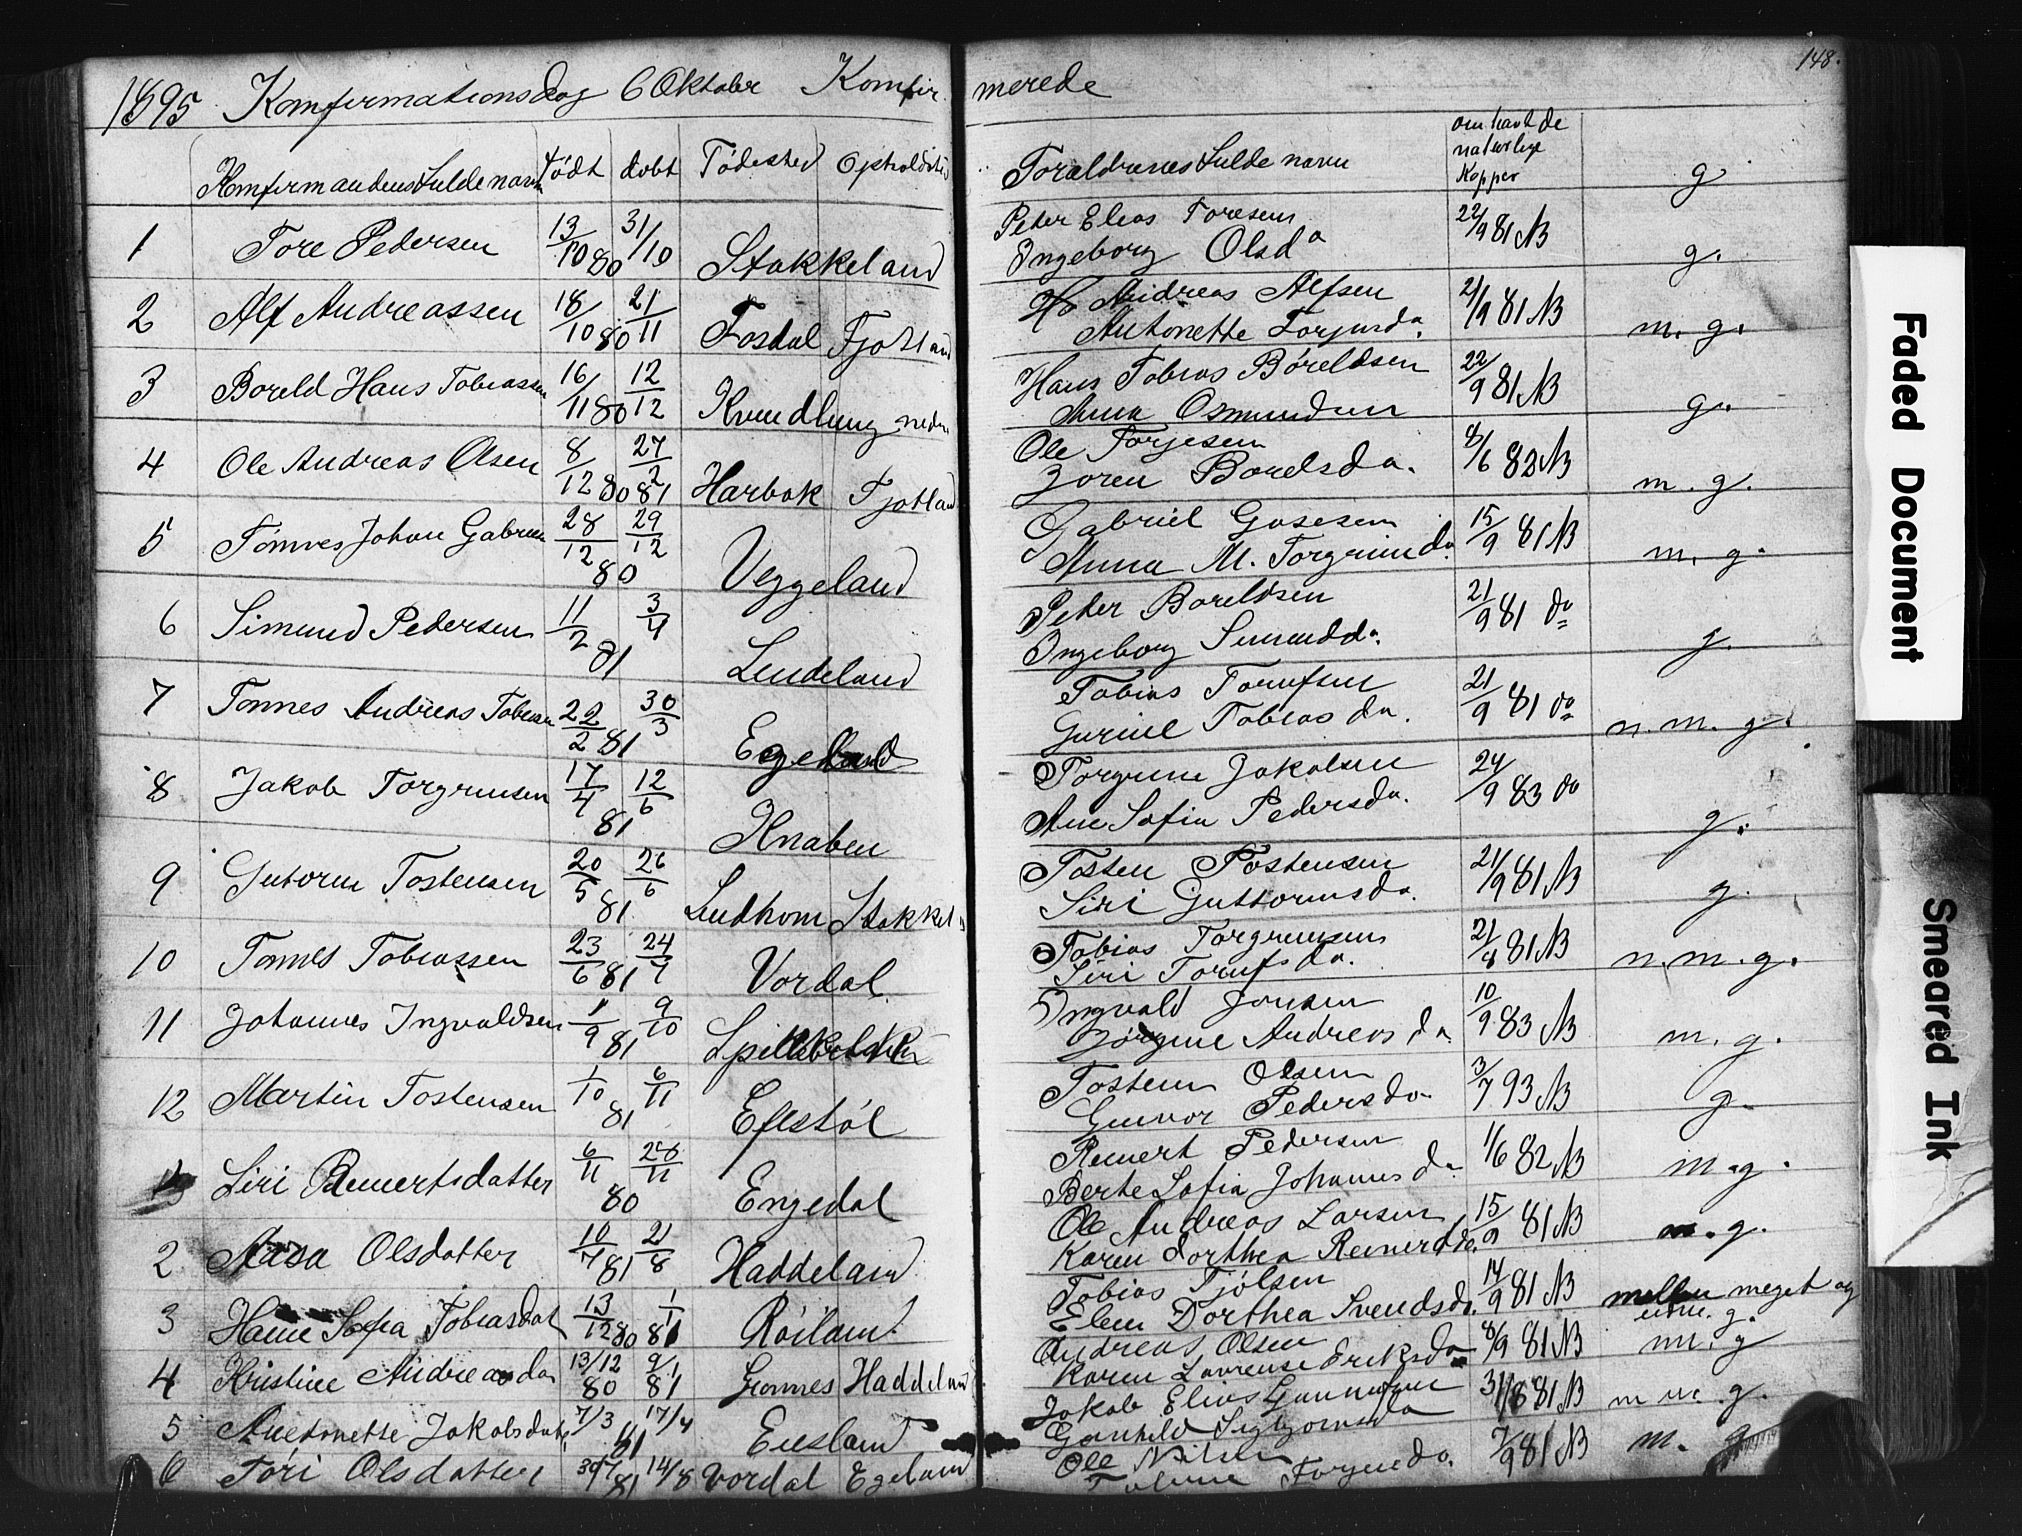 148.
1895 Konfirmationsdag 6 Oktober Konfirmerede
Konfirmandens fulde navn født døbt Fødested Opholdsted Forældrenes fulde navn om havt de naturlige Kopper g
1 Tore Pedersen 13/10 80 31/10 Stakkeland Peter Elias Toresen 22/9 81 AB g.
Ingeborg Olsda
2 Alf Andreassen 18/10 80 21/11 Fosdal Fjotland Andreas Alfsen 21/9 81 AB m. g.
Antonette Torjusda.
3 Boreld Hans Tobiassen 16/11 80 12/12 Kvindlung nedre Hans Tobias Böreldsen 22/9 81 AB g.
Anna Osmundsen
4 Ole Andreas Olsen 8/12 80 27/2 81 Harbak Fjotland Ole Torjesen 8/6 82 AB m. g.
Joren Borelsda.
5 Tönnes Johan Gabrielsen 28/12 80 29/12 Veggeland Gabriel Gosesen 15/9 81 AB m. g.
Anna M. Torgrimda.
6 Simund Pedersen 11/2 81 3/4 Lindeland Peter Boreldsen 21/9 81 do g.
Ingeborg Simundda.
7 Tönnes Andreas Tobiasen 22/2 81 30/3 Egeland Tobias 21/9 81 do n. m. g.
Guriel Tobiasda.
8 Jakob Torgrimsen 17/4 81 12/6 Knaben Torgrim Jakobsen 24/9 83 do g.
Ane Sofia Pedersda.
9 Gutorm Tostensen 20/5 81 26/6 Lindhom Stakkel Tosten Tostensen 21/9 81 AB g.
Siri Guttormsda.
10 Tönnes Tobiassen 23/6 81 24/7 Vordal Tobias Torgrimsen 21/8 81 AB n. m. g.
Siri
11 Johannes Ingvaldsen 1/9 81 9/10 Ingvald Jonsen 10/9 83 AB m. g.
Jörgine Andreasda.
12 Martin Tostensen 1/10 81 6/11 Eftestöl Tosten Olsen 3/7 93 AB g.
Gunvor Pedersda.
1 Siri Reinertsdatter 6/11 80 28/11 Engedal Reinert Pedersen 1/6 82 AB m. g.
Berte Sofia Johannesda.
2 Aasa Olsdatter 10/7 81 21/8 Haddeland Ole Andreas Larsen 15/9 81 AB m. g.
Karen Dorthea Reinertda.
3 Hanne Sofia Tobiasdat 13/12 80 1/1 81 Röiland Tobias Tjölsen 14/9 81 AB mellem meget og
Elen Dorthea Svendsda. g.
4 Kristine Andreasda 13/12 80 9/1 81 Haddeland Andreas Olsen 8/9 81 AB m. g
Karen Lovense Eriksda
5 Antonette Jakobsdat 7/3 81 17/4 Eiesland Jakob Elias 31/8 81 AB m m. g.
Gunhild
6 Tori Olsdatter 30/7 81 14/8 Vordal Egeland Ole Nilsen 7/9 81 AB m. g
Torgrimda.
Faded Document
Smeared Ink